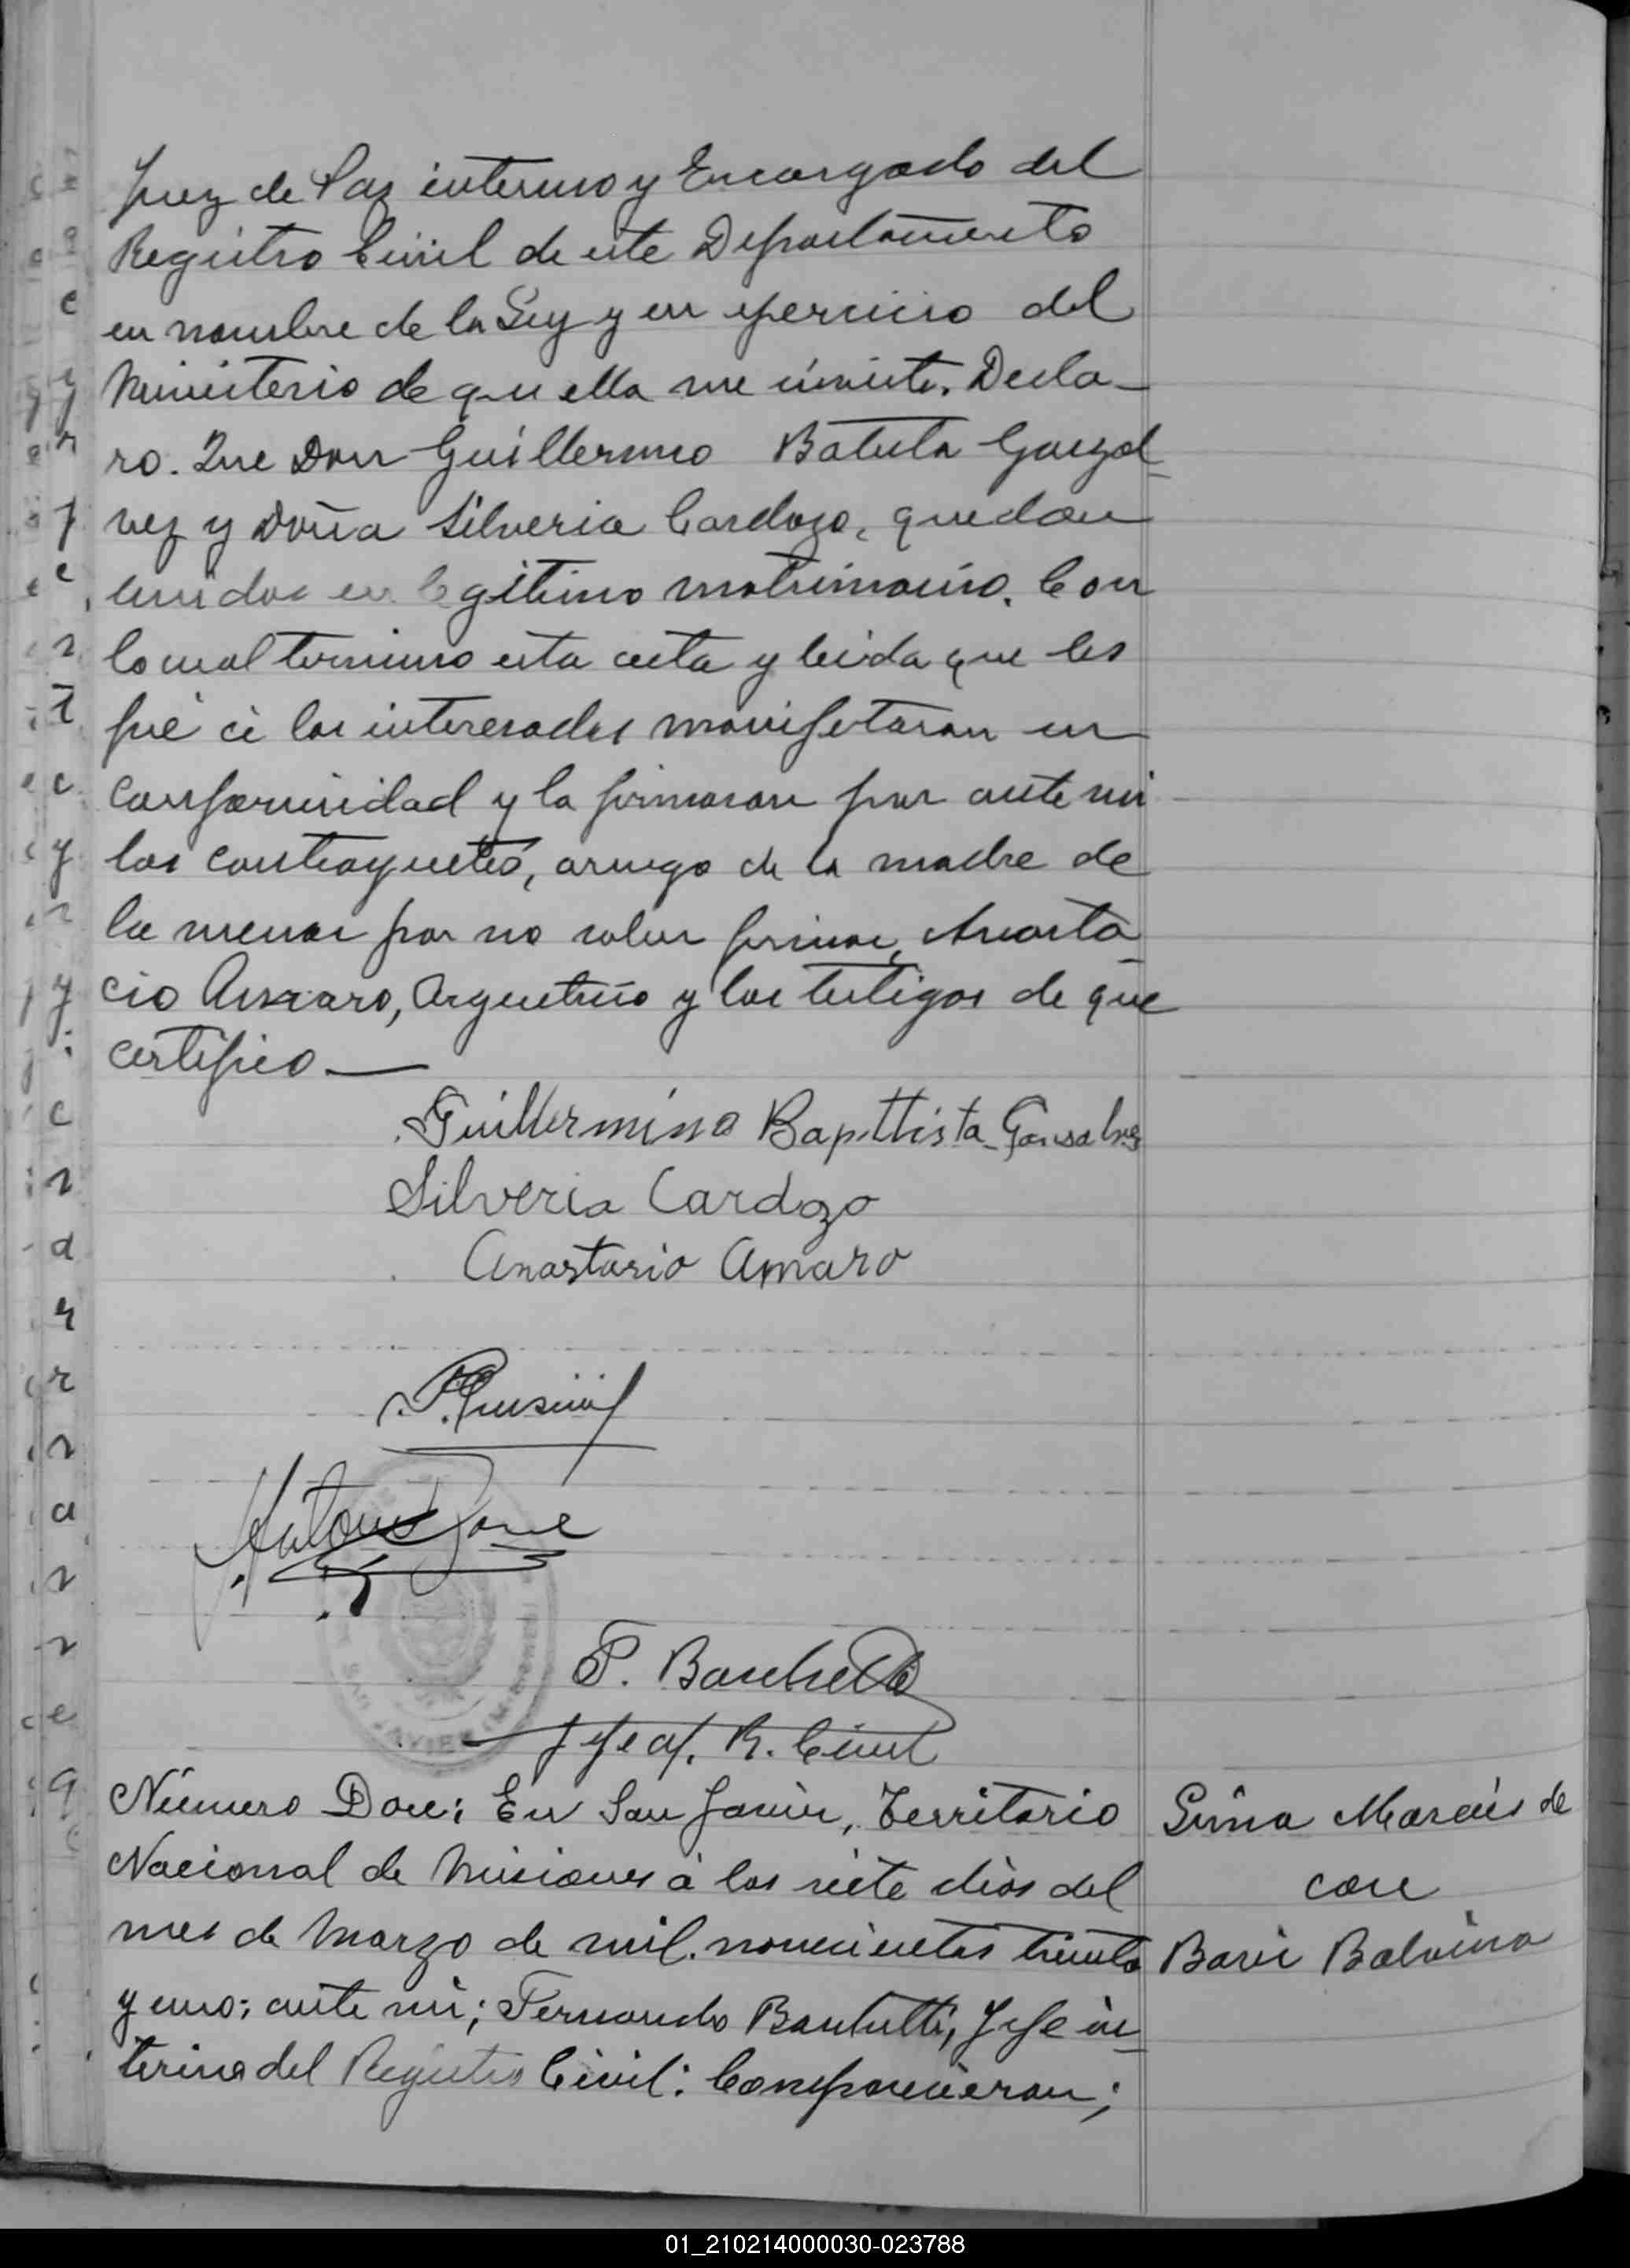 Juez de Paz interino y Encargado del
Registro Civil de este Departamento
en nombre de la Ley y en ejercicio del
Ministerio de que ella me inviste. Decla-
ro. Que Don Guillermino Batista Gonzal-
vez y Doña Silveria Cardozo, quedan
unidos en legitimo matrimonio. Con
lo cual termino esta acta y leida que les
fué á los interesados manifestaron su
conformidad y la firmaron por ante mi
los contrayentes, a ruego de la madre de
la menor por no saber firmar, Anasta-
cio Amaro, Argentino y los testigos de que
certifico.—
Guillermino Bapttista Gonsalves
Silveria Cardozo
Anastasio Amaro
Antonio
F. Banchetti
Jefe R. Civil
SAN JAVIER
Número Doce: En San Javier, Territorio
Nacional de Misiones á los siete dias del
mes de Marzo de mil novecientos treinta
y uno: ante mi; Fernando Banchetti, Jefe in-
terino del Registro Civil: Comparecieron;
de
con
Balvina
01_210214000030-023788